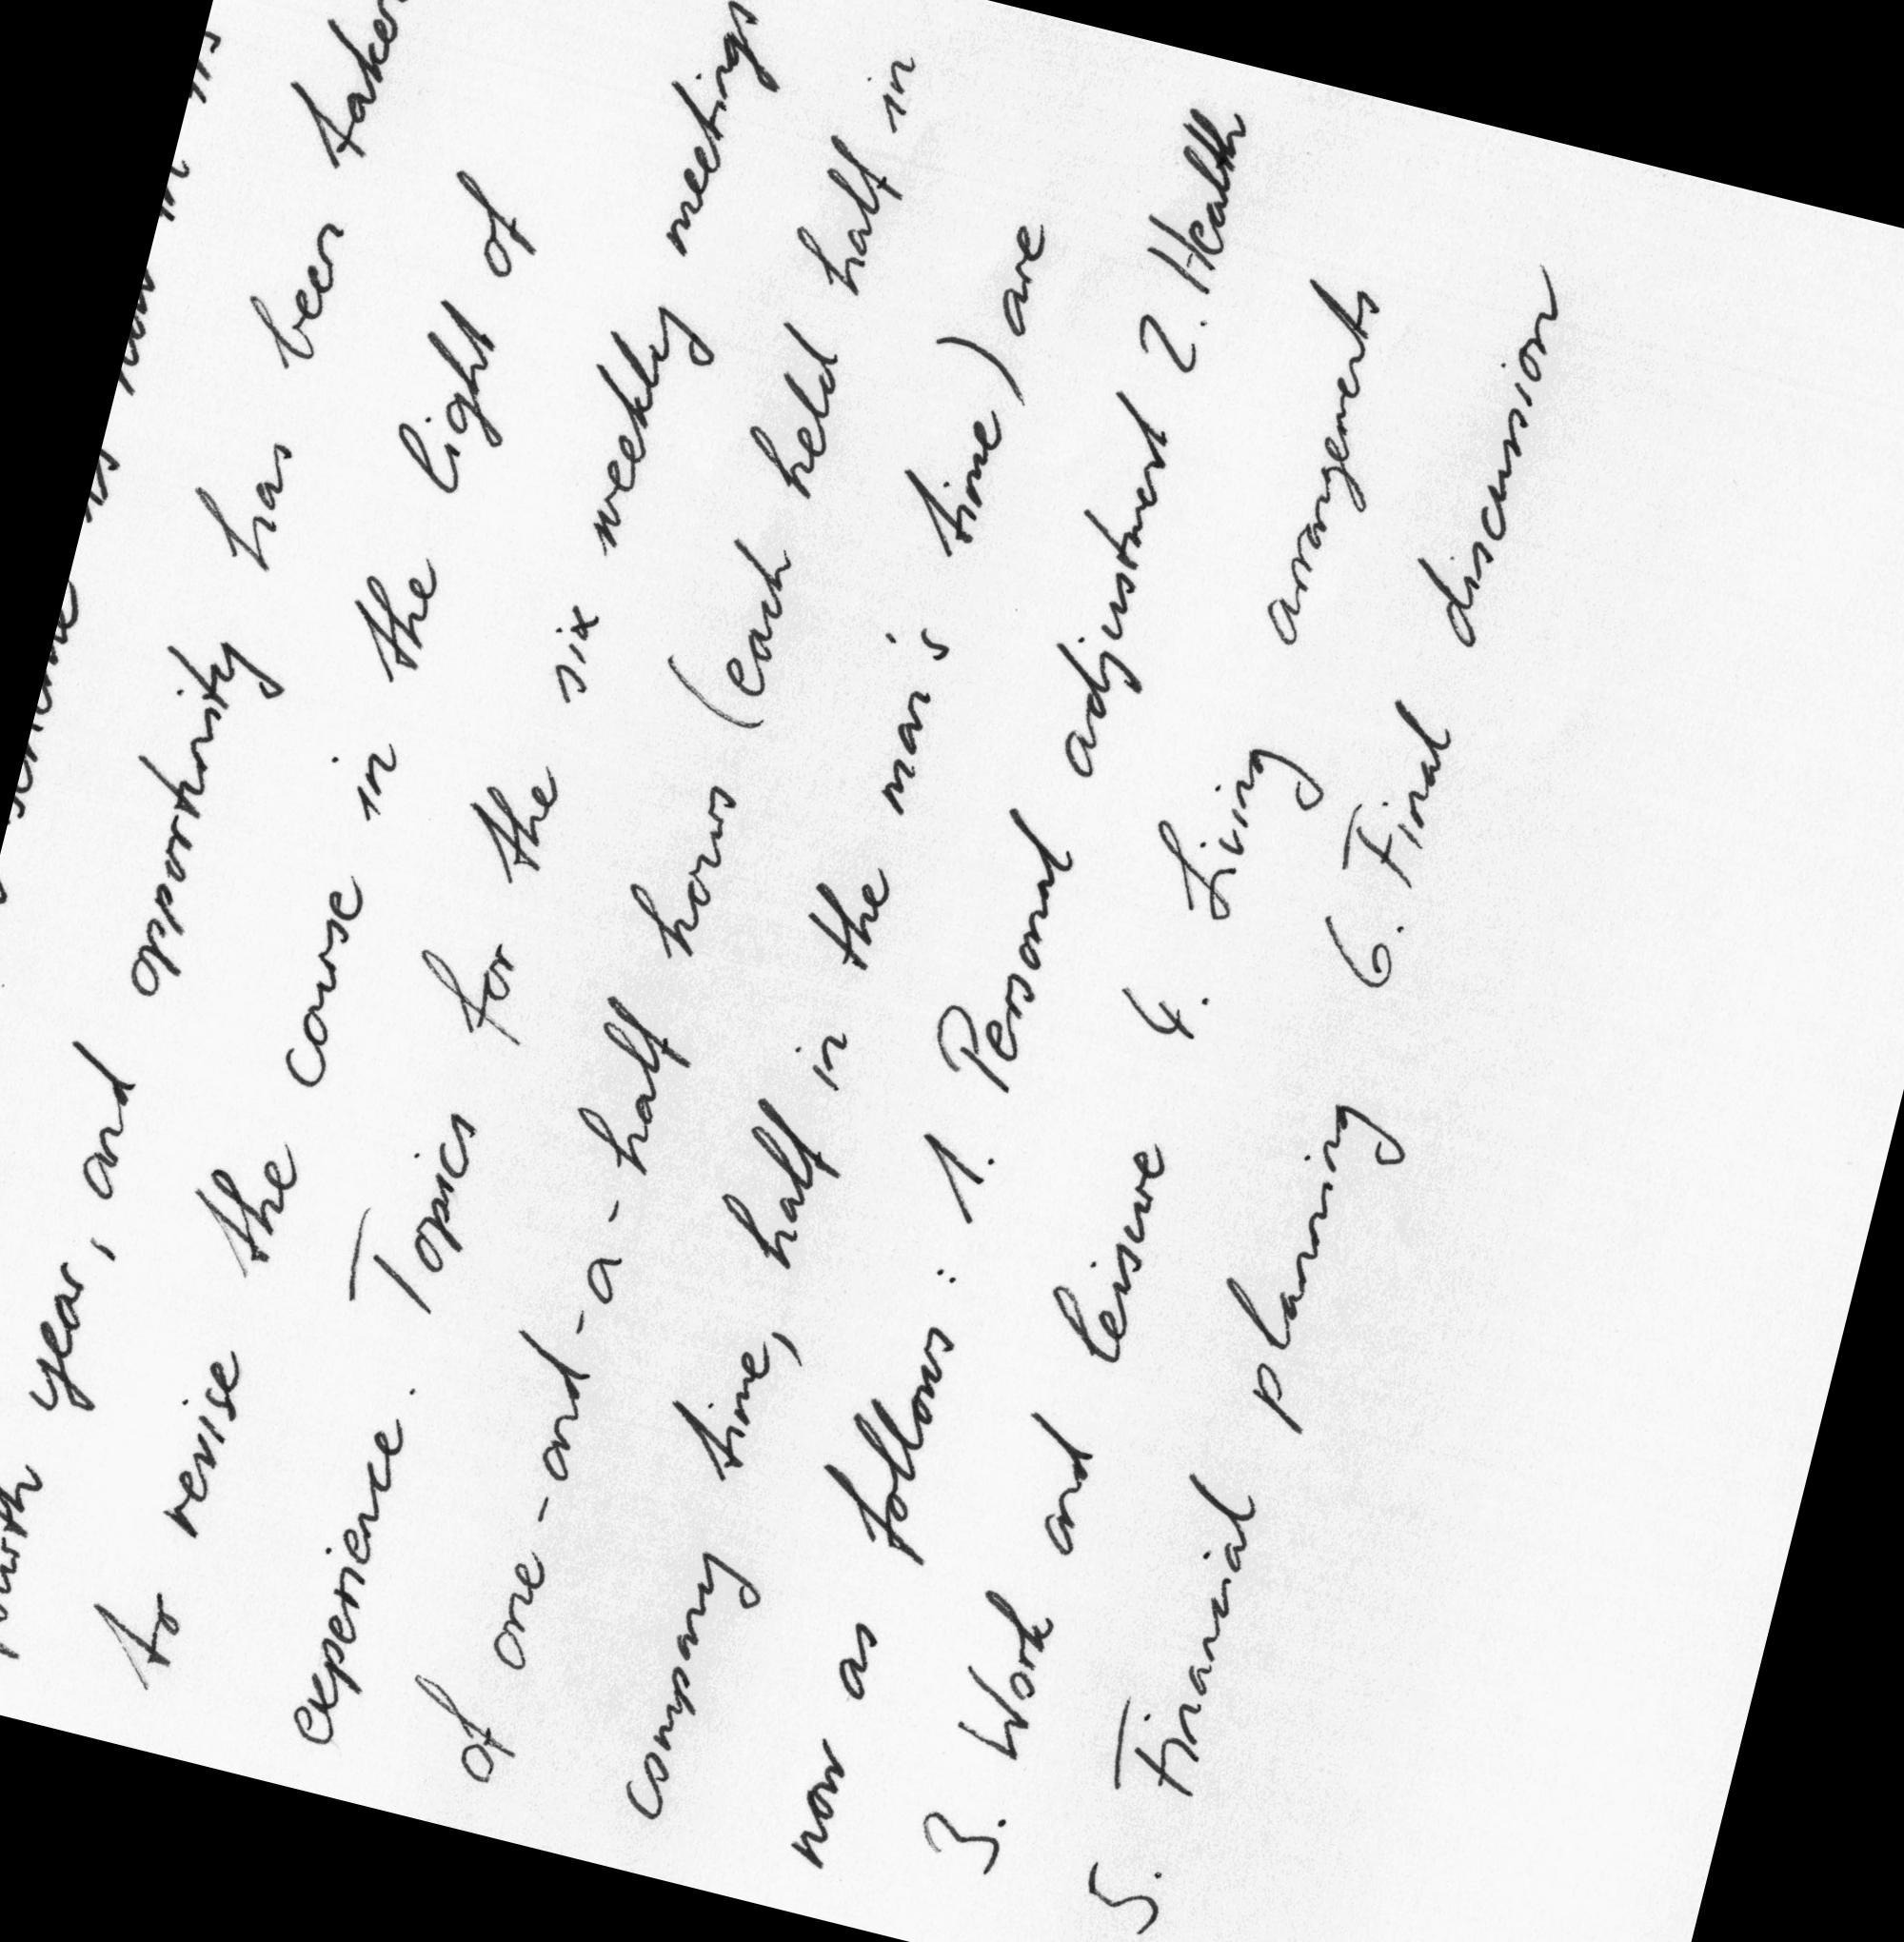 scheme is now in its
fourth year, and opportunity has been taken
to revise the course in the light of
experience. Topics for the six weekly meetings
of one-and-a-half hours (each held half in
company time, half in the man's time) are
now as follows: 1. Personal adjustment 2. Health
3. Work and leisure 4. Living arrangements
5. Financial planning 6. Final discussion